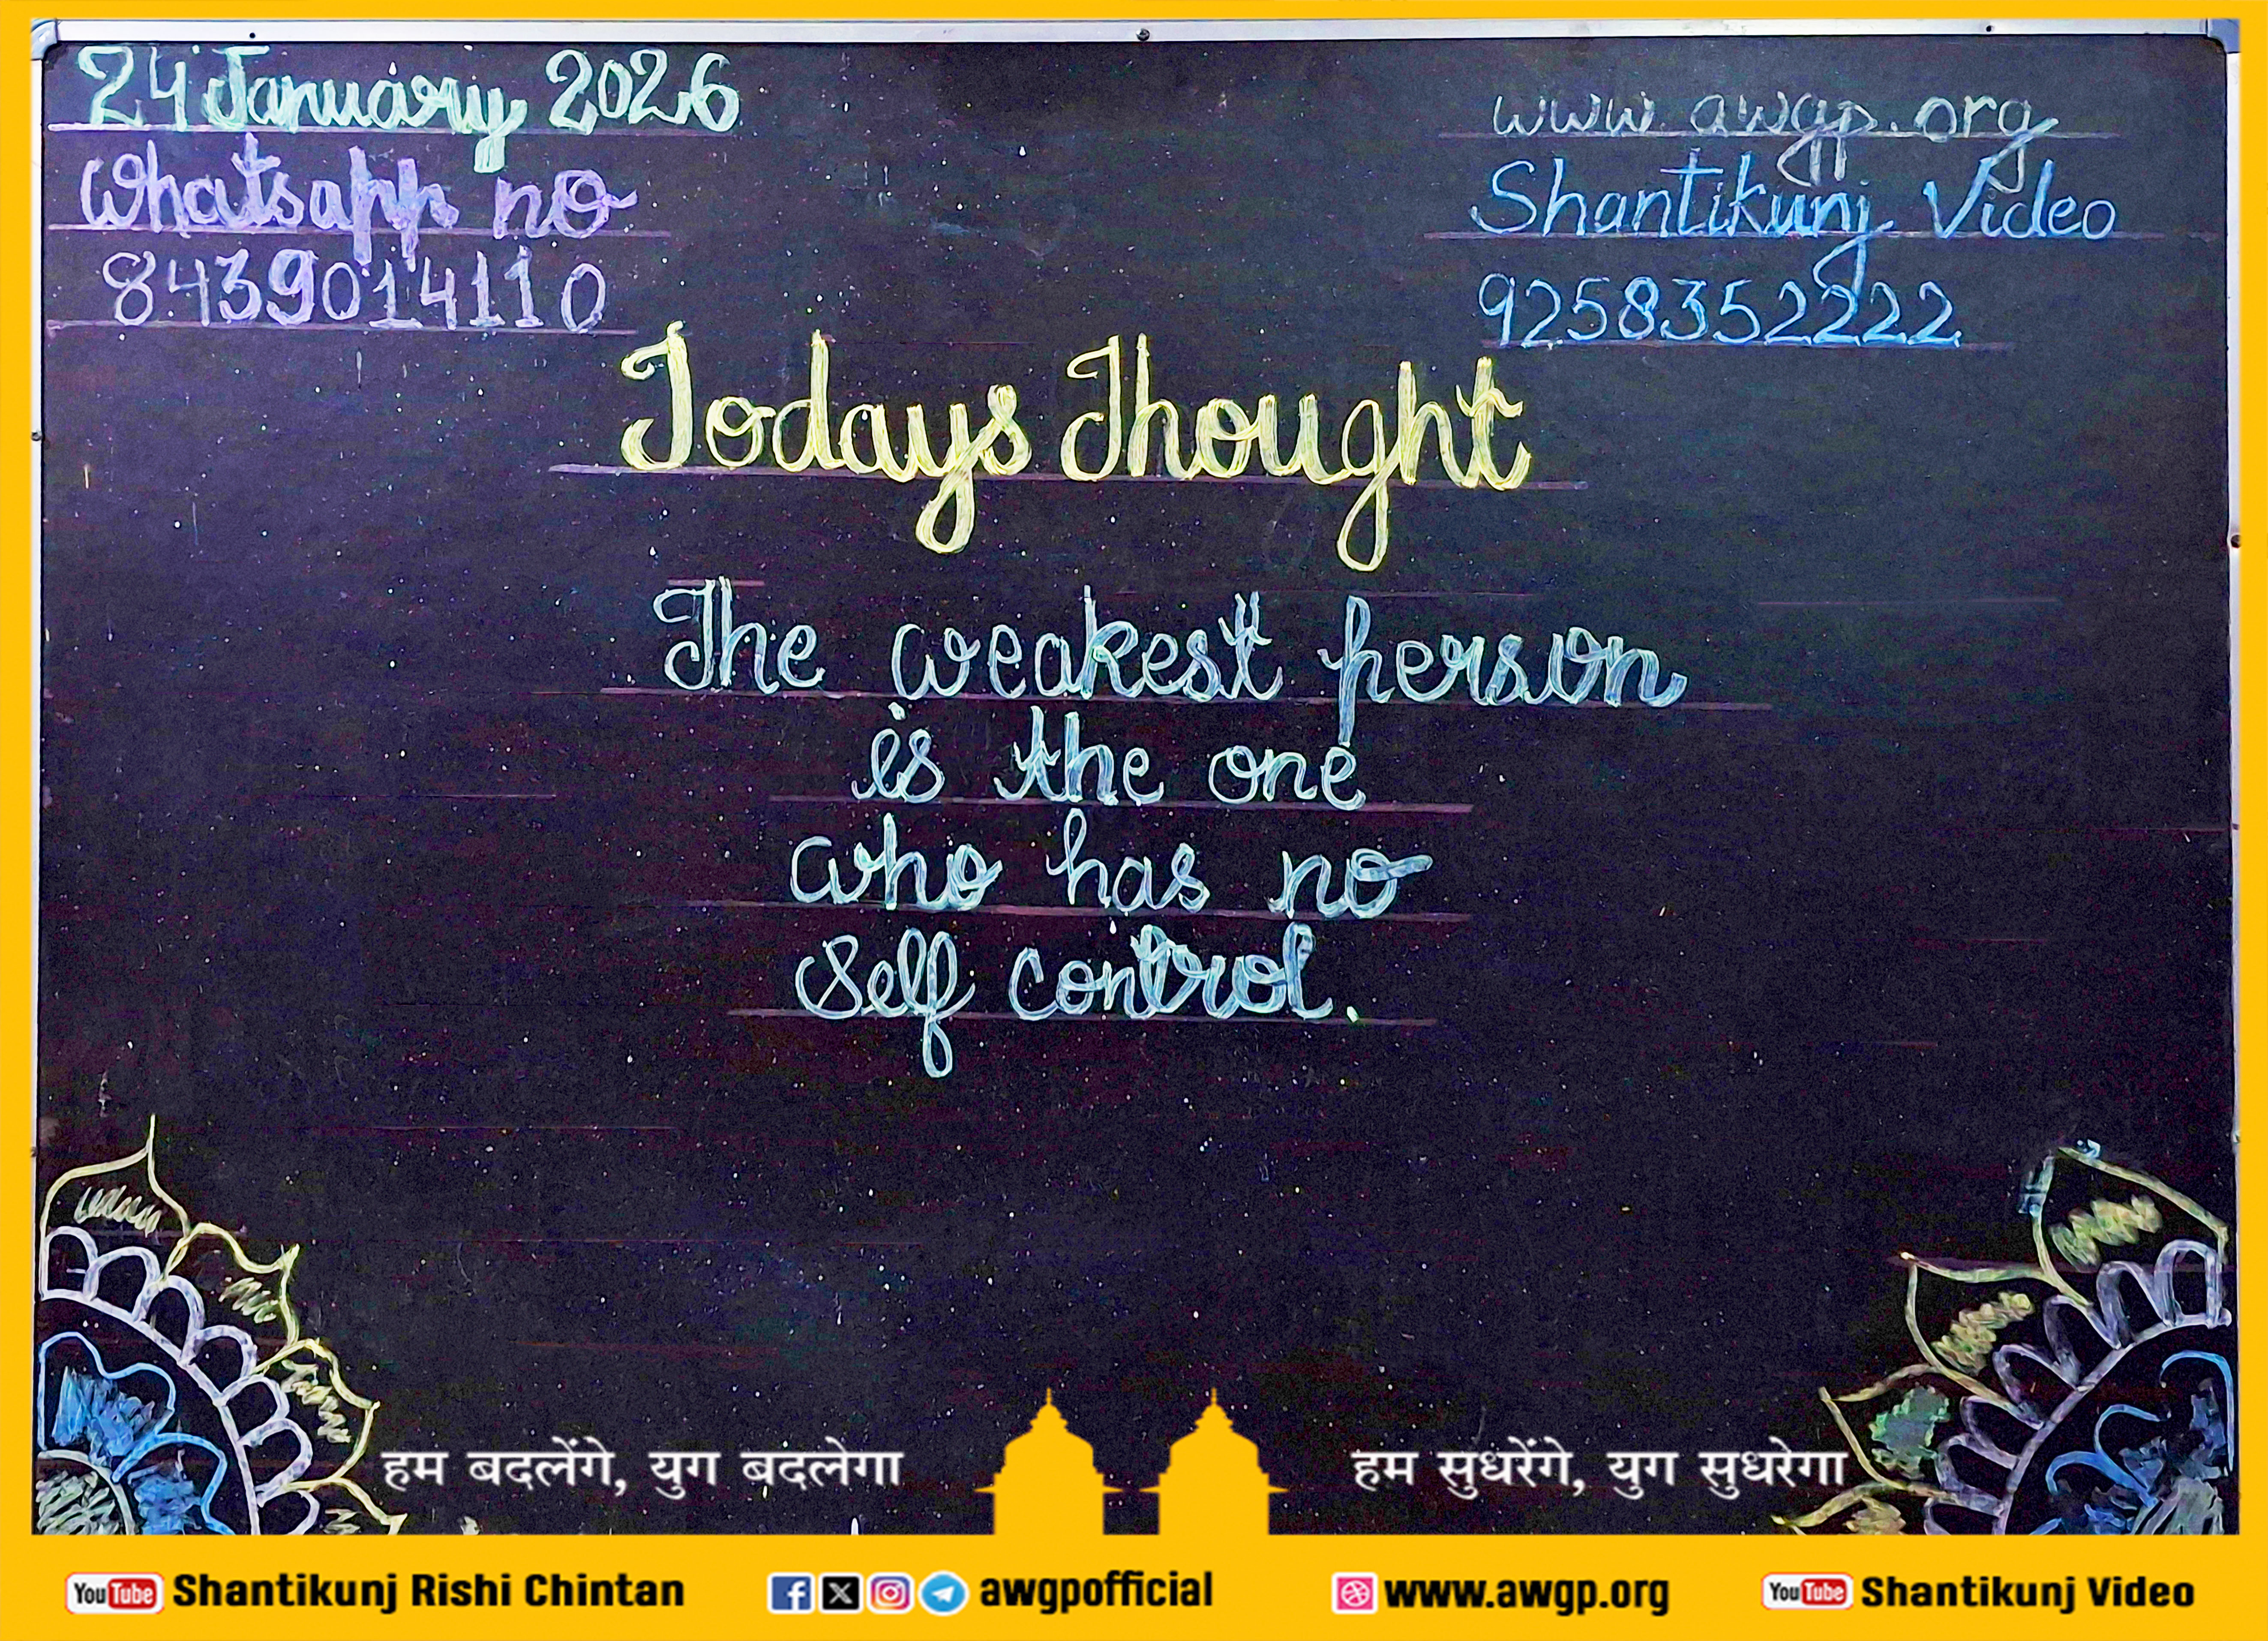 24 January 2026
Whatsapp no
8439014110
www.awgp.org
Shantikunj Video
9258352222
Todays Thought
The weakest person
is the one
who has no
Self control.
हम बदलेंगे, युग बदलेगा
हम सुधरेंगे, युग सुधरेगा
YouTube Shantikunj Rishi Chintan
awgpofficial
www.awgp.org
YouTube Shantikunj Video